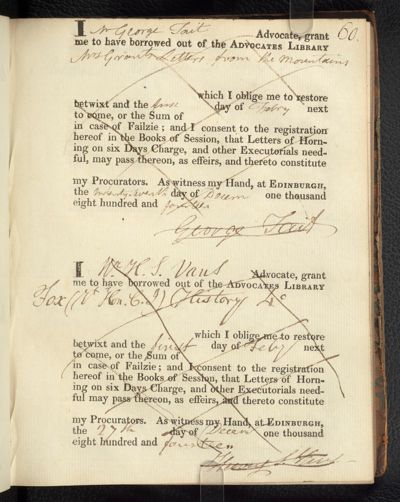 I Mr George Tait Advocate, grant 60.
me to have borrowed out of the ADVOCATES LIBRARY
Mrs Grant's Letters from the Mountains
which I oblige me to restore
betwixt and the first day of Febry next
to come, or the Sum of
in case of Failzie; and I consent to the registration
hereof in the Books of Session, that Letters of Horn-
ing on six Days Charge, and other Executorials need-
ful, may pass thereon, as effeirs, and thereto constitute
my Procurators. As witness my Hand, at EDINBURGH,
the day of Decem one thousand
eight hundred and fourteen
George Tait
I H. S. Vans Advocate, grant
me to have borrowed out of the ADVOCATES LIBRARY
Fox History 4o
which I oblige me to restore
betwixt and the first day of Febry next
to come, or the Sum of
in case of Failzie; and I consent to the registration
hereof in the Books of Session, that Letters of Horn-
ing on six Days Charge, and other Executorials need-
ful may pass thereon, as effeirs, and thereto constitute
my Procurators. As witness my Hand, at EDINBURGH,
the 27th day of Decem one thousand
eight hundred and fourteen